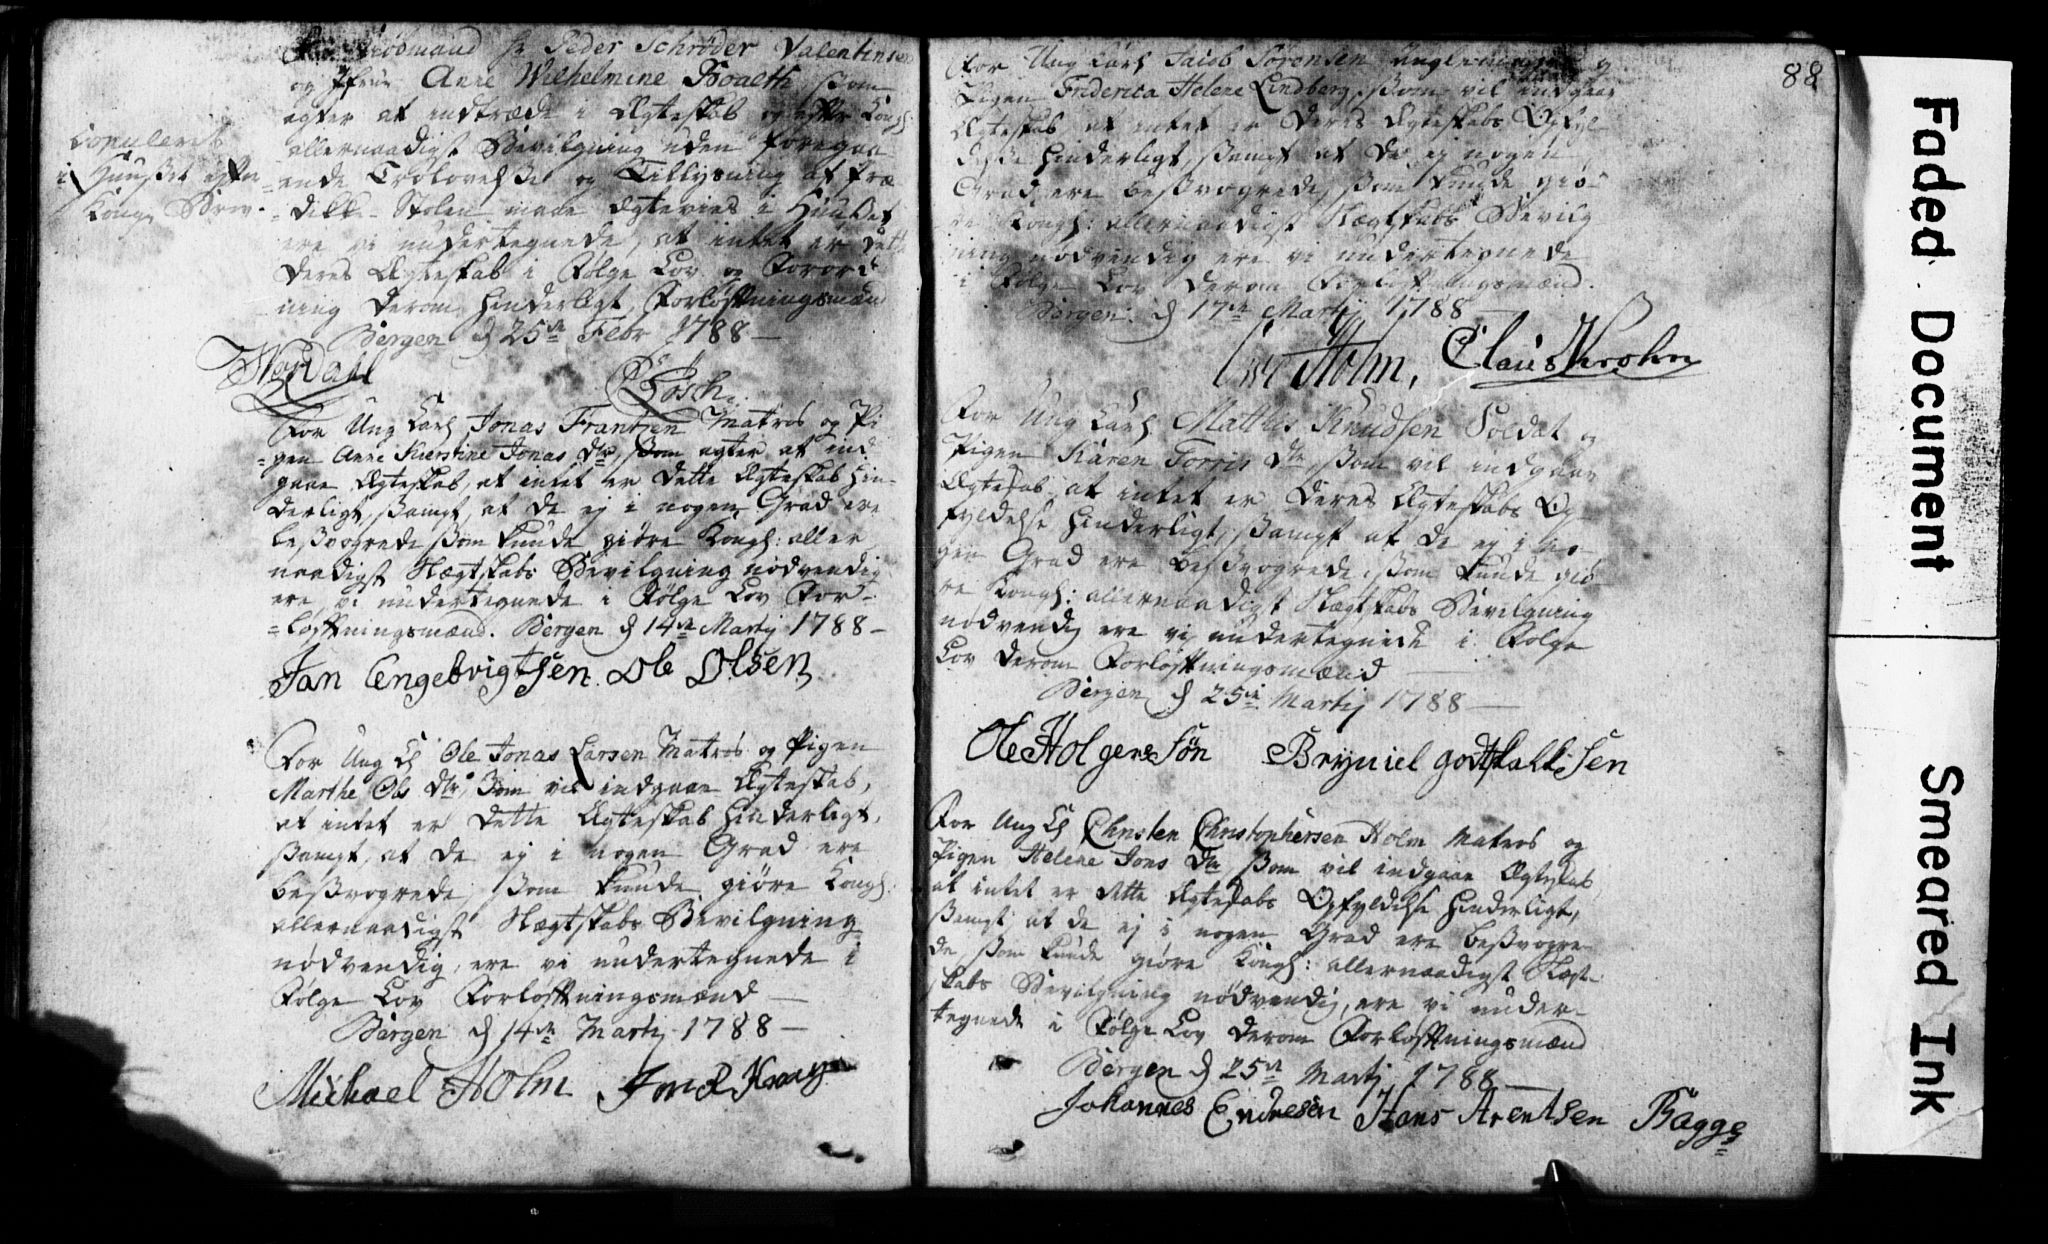 Kiøbmand Hr Peder Schrøder Valentinsen
og Jfrue Anne Wilhelmine Boalth som
agter at indtræde i Ægteskab og efter Kongl:
allernaadigst Bevilgning uden foregaa
ende Trolovelse og Tillysning af Præ-
dike-Stolen maae Ægtevies i Huuset
ere vi undertegnede, at intet er dette
deres Ægteskab i Følge Lov og Forord
ning derom hinderligt, Forloftningsmænd
Bergen d 25de Febr 1788 —
copuleret
i Huuset efter
Kongl Brev.
Wordahl
For Ung Karl Jonas Frantzen Matros og Pi
gen Anne Kierstine Jonas Dtr, som agter at ind
gaae Ægteskab, at intet er dette Ægteskab hin-
derligt, sampt, at de ej i nogen Grad ere
besvogrede som kunde giøre Kongl: aller
naadigst Slægtskabs Bevilgning nødvendig
ere vi undertegnede i Følge Lov For-
loftningsmænd. Bergen d 14de Martij 1788 —
Jan Engebrigtsen Ole Olsen
For Ung K Ole Jonas Larsen Matros og Pigen
Marthe Ols Dtr, som vil indgaae Ægteskab,
at intet er dette Ægteskab hinderligt,
sampt, at de ej i nogen Grad ere
besvogrede, som kunde giøre Kongl.
allernaadigst Slægtskabs Bevilgning
nødvendig, ere vi undertegnede i
Følge Lov Forloftningsmænd —
Bergen d 14de Martij 1788 —
Michael Holm
88
For Ung Karl Jacob Sørensen og
Pigen Friderica Helene Lindberg, som vil indgaae
Ægteskab, at intet er deres Ægteskabs Opfyl
delse hinderligt, sampt at de ej nogen
Grad ere besvogrede, som kunde giø-
re Kongl: allernaadigst Slægtskabs Bevilg
ning nødvendig ere vi undertegnede
i Følge Lov derom Forloftningsmænd.
Bergen d 17de Martij 1788
Holm, Claus Krohn
For Ung Karl Mathis Knudsen Soldat og
Pigen Karen Torris Dtr, som vil indgaae
Ægteskab, at intet er deres Ægteskabs Op-
fyldelse hinderligt, sampt at de ej i no-
gen Grad ere besvogrede, som kunde giø
re Kongl: allernaadigst Slægtskabs Bevilgning
nødvendig ere vi undertegnede i Følge
Lov derom Forloftningsmænd —
Bergen d 25de Martij 1788 —
Ole Holgersøn Bryniel Godtskalksen
For Ung K Christen Christophersen Holm Matros og
Pigen Helene Jons Dtr, som vil indgaae Ægteskab,
at intet er dette Ægteskabs Opfyldelse hinderligt,
sampt, at de ej i nogen Grad ere besvogre-
de, som kunde giøre Kongl: allernaadigst Slægt-
skabs Bevilgning nødvendig, ere vi under-
tegnede i Følge Lov derom Forloftningsmænd
Bergen d 25de Martij 1788 —
Johannes Endresen Hans Arentsen Bagge
Faded Document
Smeared Ink